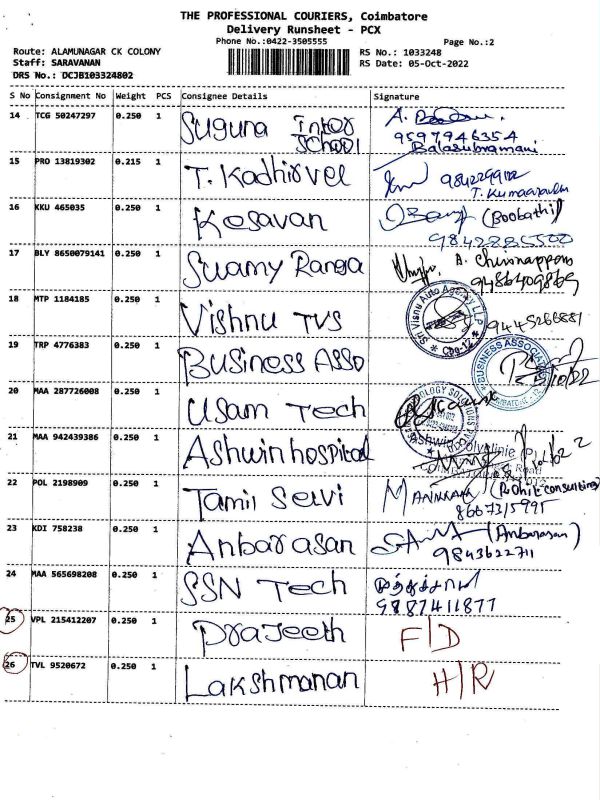 THE PROFESSIONAL COURIERS, Coimbatore
Delivery Runsheet - PCX
Phone No.:0422-3505555
Page No.:2
Route: ALAMUNAGAR CK COLONY
RS No.: 1033248
Staff: SARAVANAN
RS Date: 05-Oct-2022
DRS No.: DCJB103324802
S No Consignment No Weight PCS Consignee Details Signature
14 TCG 50247297 0.250 1 Suguna Inter School A.
9597946354
Balasubramani
15 PRO 13819302 0.215 1 T. Kadhirvel
16 KKU 465035 0.250 1 Kesavan (Boobathi)
17 BLY 8650079141 0.250 1 Swamy Ranga A. Chinnappan
9486409869
18 MTP 1184185 0.250 1 Vishnu TVS Sri Visnu Auto Agency LLP
9445266881
19 TRP 4776383 0.250 1 Business Asso BUSINESS ASSOCIATES
20 MAA 287726008 0.250 1 Usam Tech
21 MAA 942439386 0.250 1 Ashwin hospital Ashwin Polyclinic
22 POL 2198909 0.250 1 Tamil Selvi (Rohit consulting)
8667315995
23 KDI 758238 0.250 1 Anbarasan (Anbarasan)
9843622711
24 MAA 565698208 0.250 1 SSN Tech
9887411877
25 VPL 215412207 0.250 1 Prajeeth F/D
26 TVL 9520672 0.250 1 Lakshmanan H/R